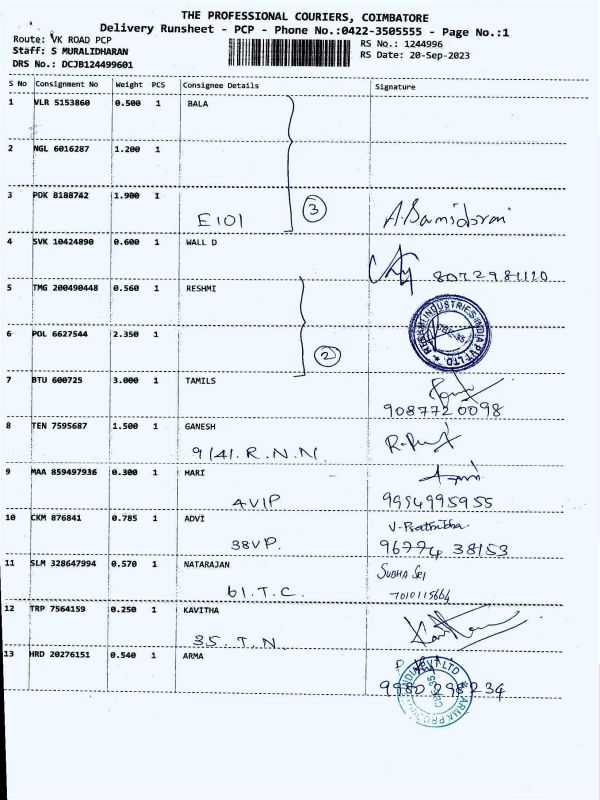 THE PROFESSIONAL COURIERS, COIMBATORE
Delivery Runsheet - PCP - Phone No.:0422-3505555 - Page No.:1
Route: VK ROAD PCP
RS No.: 1244996
Staff: S MURALIDHARAN
RS Date: 20-Sep-2023
DRS No.: DCJB124499601
S No Consignment No Weight PCS Consignee Details Signature
1 VLR 5153860 0.500 1 BALA
2 NGL 6016287 1.200 1
3 PDK 8188742 1.900 1
E101 3
4 SVK 10424890 0.600 1 WALL D
8072981110
5 TMG 200490448 0.560 1 RESHMI
RESHMI INDUSTRIES INDIA PVT LTD
6 POL 6627544 2.350 1
2
7 BTU 600725 3.000 1 TAMILS
9087720098
8 TEN 7595687 1.500 1 GANESH
9/41. R.N.N.
9 MAA 859497936 0.300 1 HARI
4VIP 9994995955
10 CKM 876841 0.785 1 ADVI V-Prathibha
38VP. 96774 38153
11 SLM 328647994 0.570 1 NATARAJAN SUBHA SRI
61. T.C. 7010115664
12 TRP 7564159 0.250 1 KAVITHA
35. T.N.
13 HRD 20276151 0.540 1 ARMA
9980298234